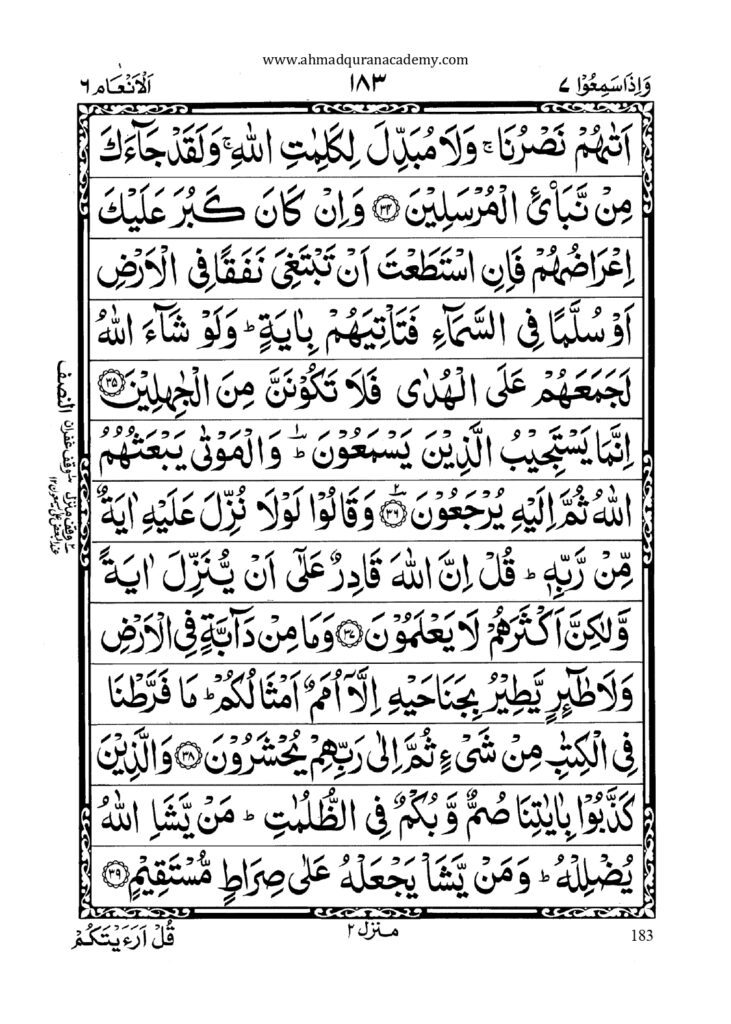 www.ahmadquranacademy.com
وَاِذَا سَمِعُوْا ٧ ١٨٣ اَلْاَنْعَام ٦
اَتٰىهُمْ نَصْرُنَا ۚ وَلَا مُبَدِّلَ لِكَلِمٰتِ اللّٰهِ ۚ وَلَقَدْ جَآءَكَ
مِنْ نَّبَاِی الْمُرْسَلِيْنَ ۝٣٤ وَاِنْ كَانَ كَبُرَ عَلَيْكَ
اِعْرَاضُهُمْ فَاِنِ اسْتَطَعْتَ اَنْ تَبْتَغِیَ نَفَقًا فِی الْاَرْضِ
اَوْ سُلَّمًا فِی السَّمَآءِ فَتَاْتِيَهُمْ بِاٰيَةٍ ؕ وَلَوْ شَآءَ اللّٰهُ
لَجَمَعَهُمْ عَلَی الْهُدٰی فَلَا تَكُوْنَنَّ مِنَ الْجٰهِلِيْنَ ۝٣٥
اِنَّمَا يَسْتَجِيْبُ الَّذِيْنَ يَسْمَعُوْنَ ؕ وَالْمَوْتٰی يَبْعَثُهُمُ
اللّٰهُ ثُمَّ اِلَيْهِ يُرْجَعُوْنَ ۝٣٦ وَقَالُوْا لَوْلَا نُزِّلَ عَلَيْهِ اٰيَةٌ
مِّنْ رَّبِّهٖ ؕ قُلْ اِنَّ اللّٰهَ قَادِرٌ عَلٰۤی اَنْ يُّنَزِّلَ اٰيَةً
وَّلٰكِنَّ اَكْثَرَهُمْ لَا يَعْلَمُوْنَ ۝٣٧ وَمَا مِنْ دَآبَّةٍ فِی الْاَرْضِ
وَلَا طٰٓئِرٍ يَّطِيْرُ بِجَنَاحَيْهِ اِلَّاۤ اُمَمٌ اَمْثَالُكُمْ ؕ مَا فَرَّطْنَا
فِی الْكِتٰبِ مِنْ شَیْءٍ ثُمَّ اِلٰی رَبِّهِمْ يُحْشَرُوْنَ ۝٣٨ وَالَّذِيْنَ
كَذَّبُوْا بِاٰيٰتِنَا صُمٌّ وَّبُكْمٌ فِی الظُّلُمٰتِ ؕ مَنْ يَّشَاِ اللّٰهُ
يُضْلِلْهُ ؕ وَمَنْ يَّشَاْ يَجْعَلْهُ عَلٰی صِرَاطٍ مُّسْتَقِيْمٍ ۝٣٩
النصف
وقف غفران
وقف منزل
منزل ٢
قُلْ اَرَءَيْتَكُمْ
183